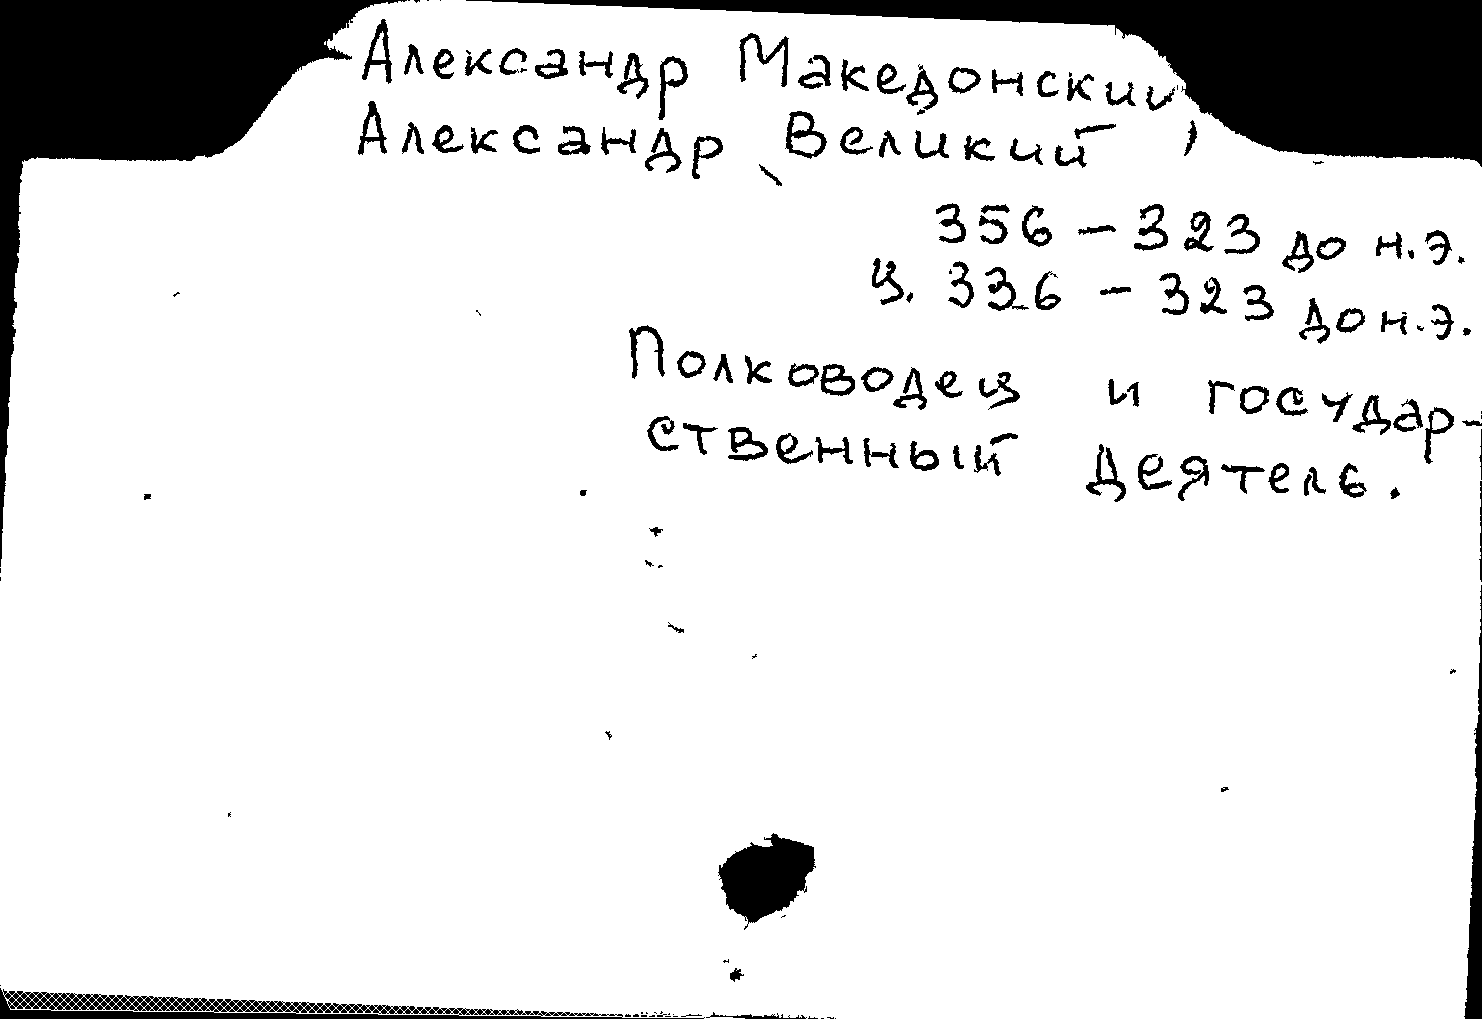 Александр Македонский,
Александр Великий
356 – 323 до н.э.
ц. 336 – 323 до н.э.
Полководец и государ-
ственный деятель.